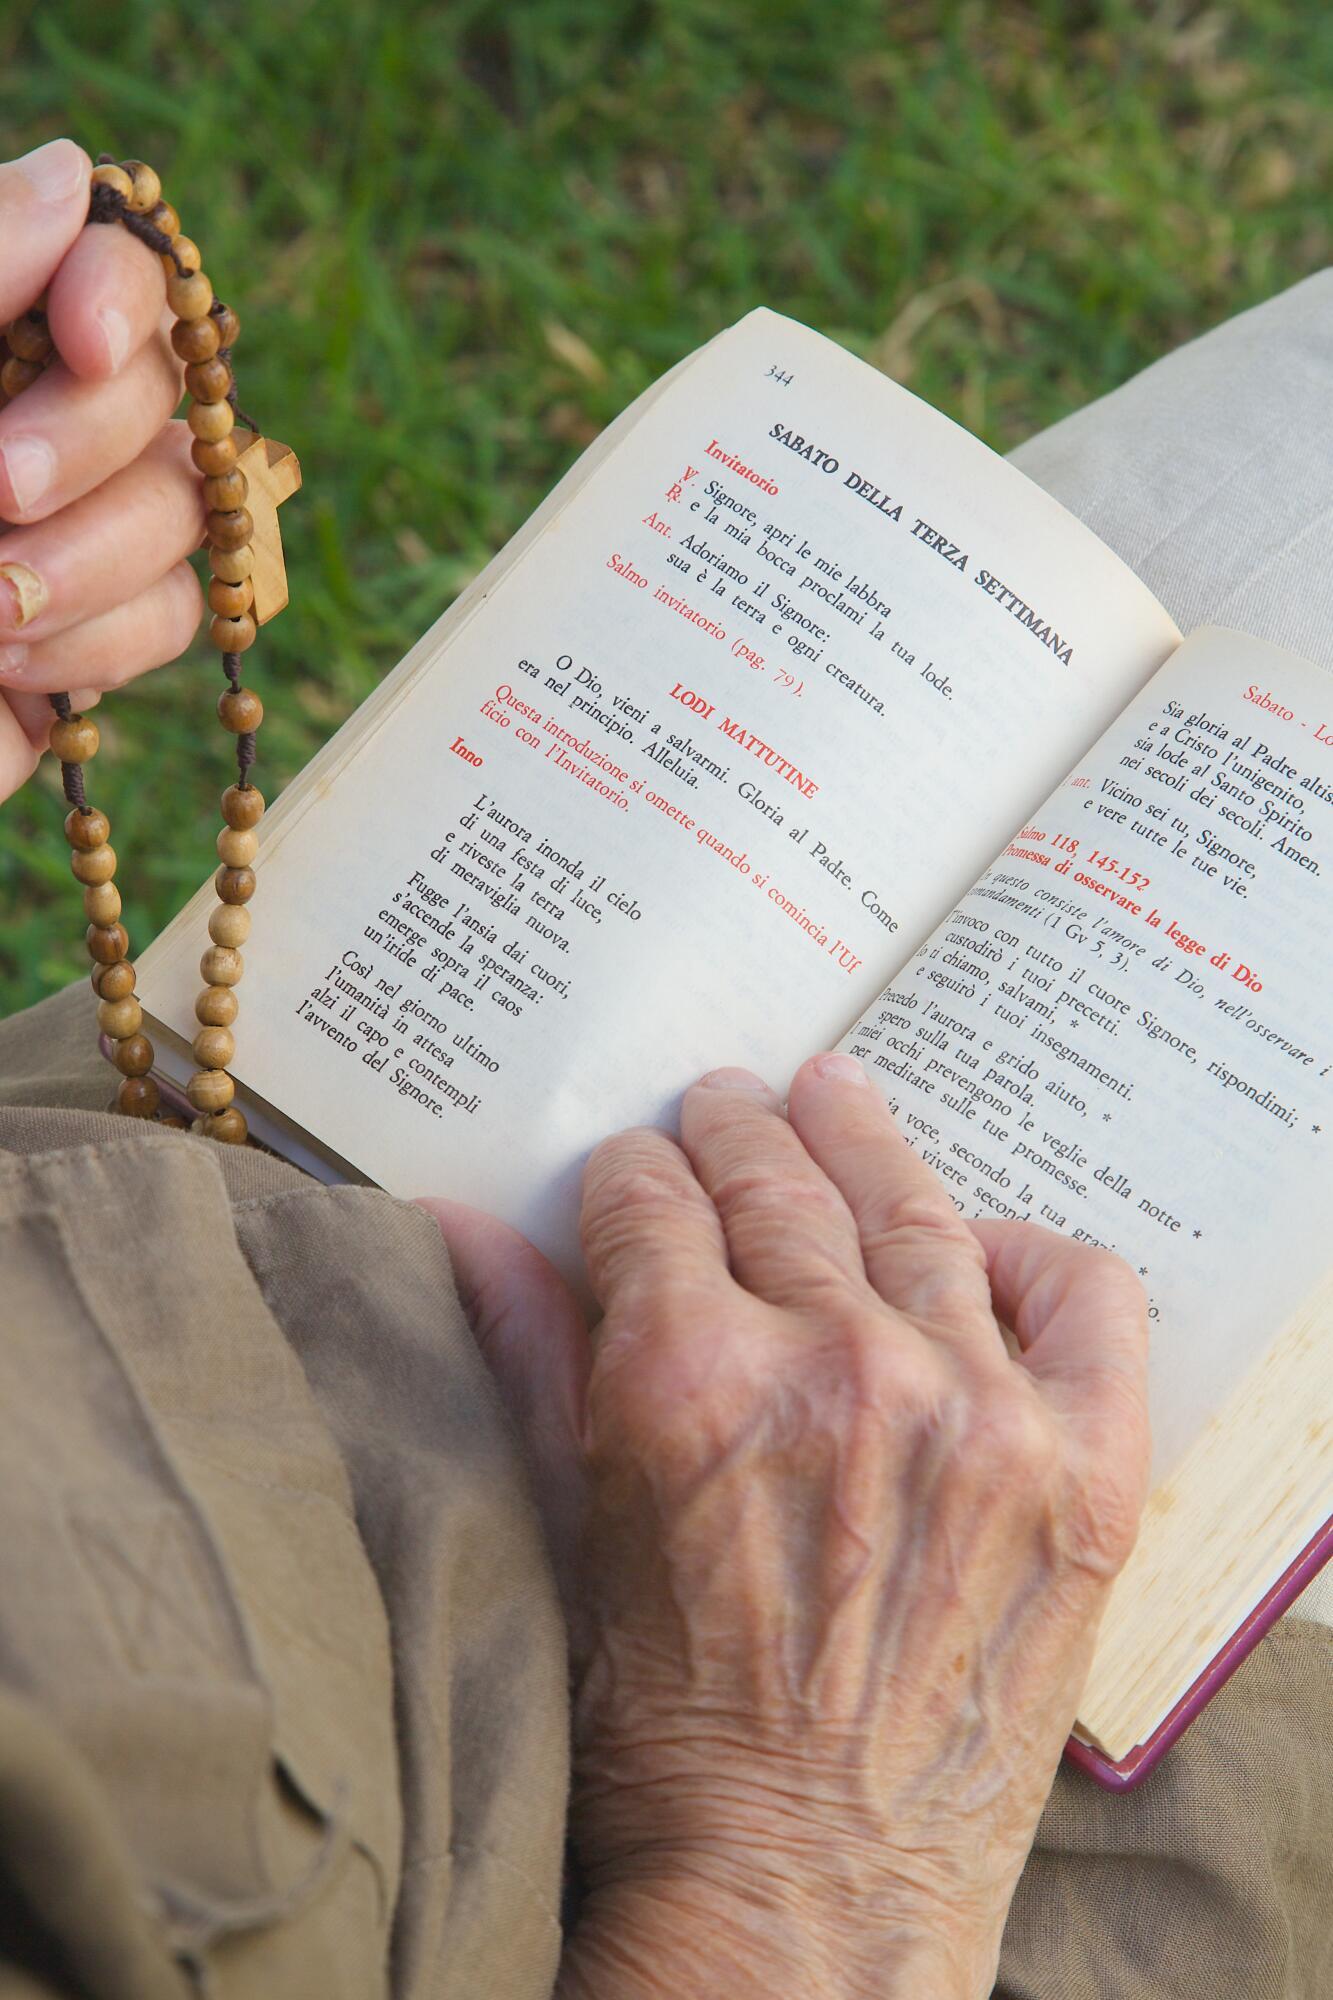 344
SABATO DELLA TERZA SETTIMANA
Invitatorio
℣. Signore, apri le mie labbra
℟. e la mia bocca proclami la tua lode.
Ant. Adoriamo il Signore:
sua è la terra e ogni creatura.
Salmo invitatorio (pag. 79).
LODI MATTUTINE
O Dio, vieni a salvarmi. Gloria al Padre. Come
era nel principio. Alleluia.
Questa introduzione si omette quando si comincia l'Uf
ficio con l'Invitatorio.
Inno
L'aurora inonda il cielo
di una festa di luce,
e riveste la terra
di meraviglia nuova.
Fugge l'ansia dai cuori,
s'accende la speranza:
emerge sopra il caos
un'iride di pace.
Così nel giorno ultimo
l'umanità in attesa
alzi il capo e contempli
l'avvento del Signore.
Sabato - Lo
Sia gloria al Padre altis
e a Cristo l'unigenito,
sia lode al Santo Spirito
nei secoli dei secoli. Amen.
ant. Vicino sei tu, Signore,
e vere tutte le tue vie.
Salmo 118, 145-152
Promessa di osservare la legge di Dio
questo consiste l'amore di Dio, nell'osservare i
comandamenti (1 Gv 5, 3).
T'invoco con tutto il cuore Signore, rispondimi; *
custodirò i tuoi precetti.
Io ti chiamo, salvami, *
e seguirò i tuoi insegnamenti.
Precedo l'aurora e grido aiuto, *
spero sulla tua parola.
I miei occhi prevengono le veglie della notte *
per meditare sulle tue promesse.
voce, secondo la tua grazia *
vivere second